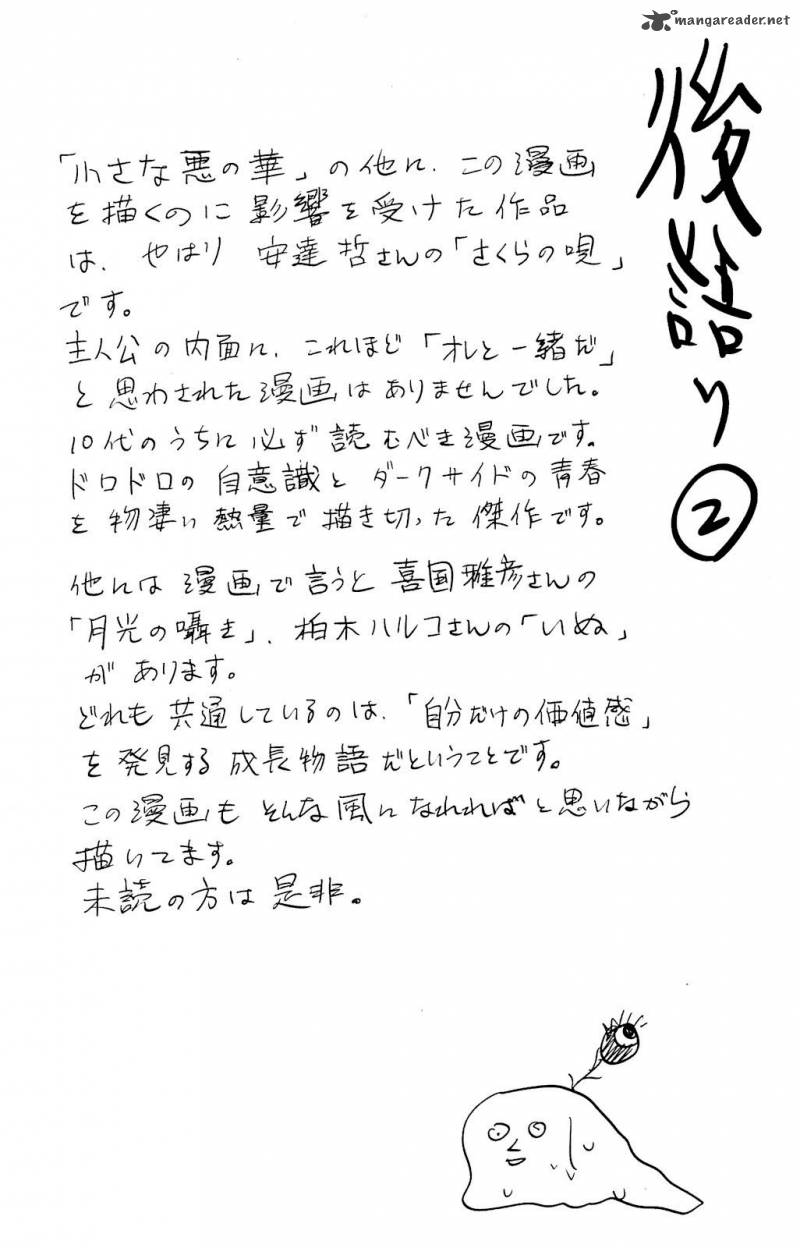 mangareader.net
後語り②
「小さな悪の華」の他に、この漫画
を描くのに影響を受けた作品
は、やはり 安達哲さんの「さくらの唄」
です。
主人公の内面に、これほど「オレと一緒だ」
と思わされた漫画はありませんでした。
10代のうちに必ず読むべき漫画です。
ドロドロの自意識とダークサイドの青春
を物凄い熱量で描き切った傑作です。
他には漫画で言うと喜国雅彦さんの
「月光の囁き」、柏木ハルコさんの「いぬ」
があります。
どれも共通しているのは、「自分だけの価値感」
を発見する成長物語だということです。
この漫画もそんな風になれればと思いながら
描いてます。
未読の方は是非。